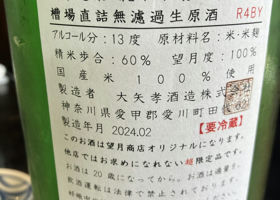 槽場直詰無濾過生原酒 R4BY
アルコール分:13度 原材料名:米・米麹
精米歩合:60% 望月度:100%
国産米100%使用
製造者 大矢孝酒造株式会
神奈川県愛甲郡愛川町田
製造年月 2024.02 【要冷蔵】
このお酒は望月商店オリジナルになります。
他店ではお求めになれない超限定品です。
お酒は20歳になってから。お酒は適量を。
飲酒運転は法律で禁止されています。